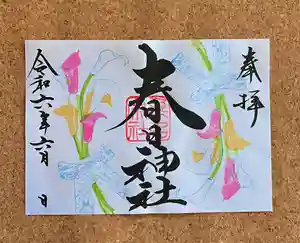 奉拝
春日神社
令和六年六月 日